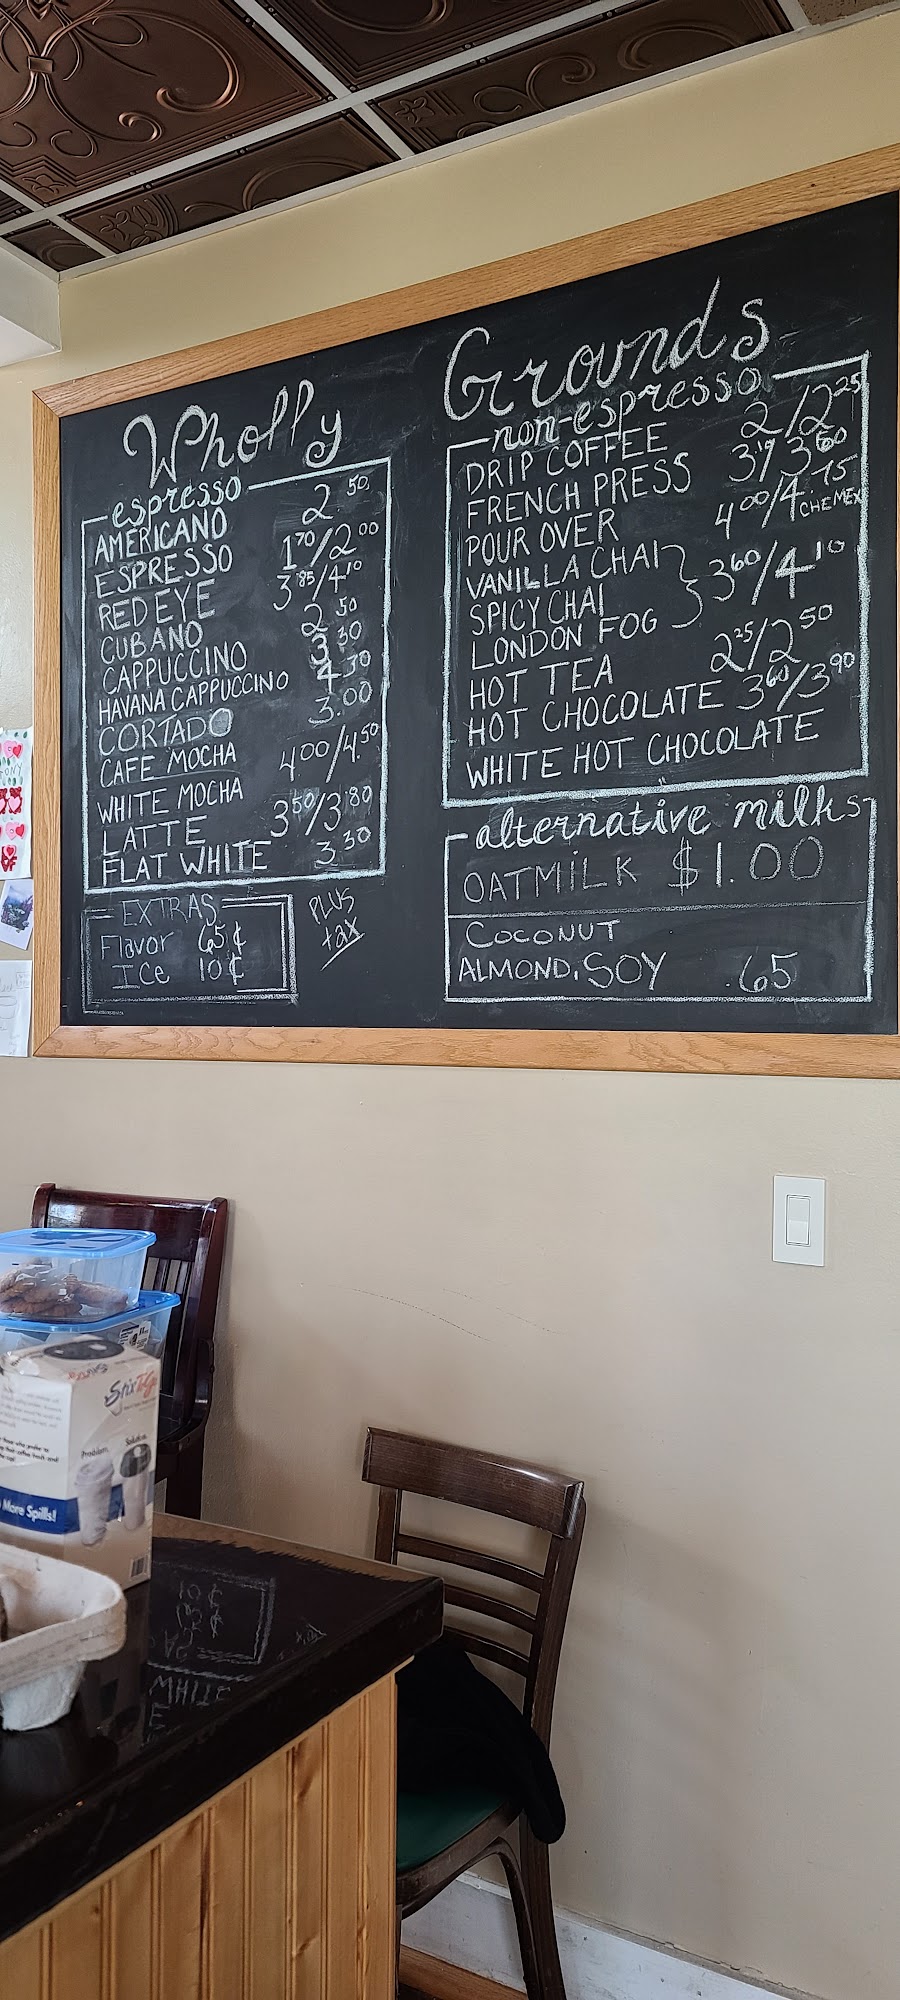 Wholly Grounds
espresso
AMERICANO 2.50
ESPRESSO 1.70/2.00
RED EYE 3.85/4.10
CUBANO 2.50
CAPPUCCINO 3.30
HAVANA CAPPUCCINO 4.30
CORTADO 3.00
CAFE MOCHA
WHITE MOCHA 4.00/4.50
LATTE 3.50/3.80
FLAT WHITE 3.30
EXTRAS
Flavor 65¢
Ice 10¢
PLUS
tax
non-espresso
DRIP COFFEE 2/2.25
FRENCH PRESS 3.19/3.60
POUR OVER 4.00/4.75
CHEMEX
VANILLA CHAI
SPICY CHAI 3.60/4.10
LONDON FOG
HOT TEA 2.25/2.50
HOT CHOCOLATE 3.60/3.90
WHITE HOT CHOCOLATE
alternative milks
OATMILK $1.00
COCONUT
ALMOND, SOY .65
StixToGo
Problem Solution
More Spills!